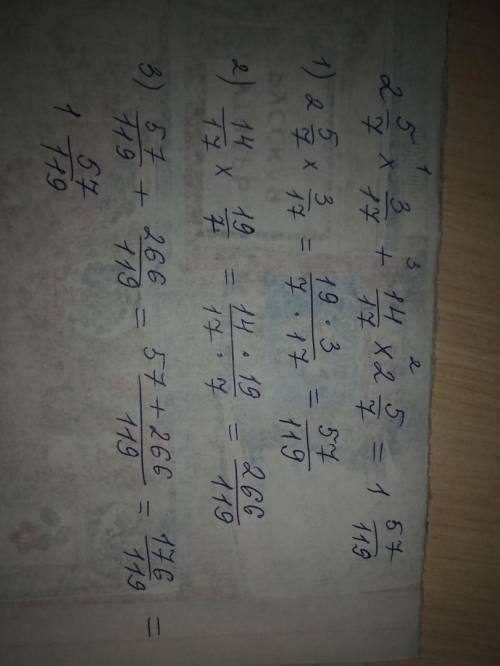 2 5/7 × 3/17 + 14/17 × 2 5/7 = 1 57/119
1) 2 5/7 × 3/17 = 19·3/7·17 = 57/119
2) 14/17 × 19/7 = 14·19/17·7 = 266/119
3) 57/119 + 266/119 = 57+266/119 = 176/119 =
1 57/119